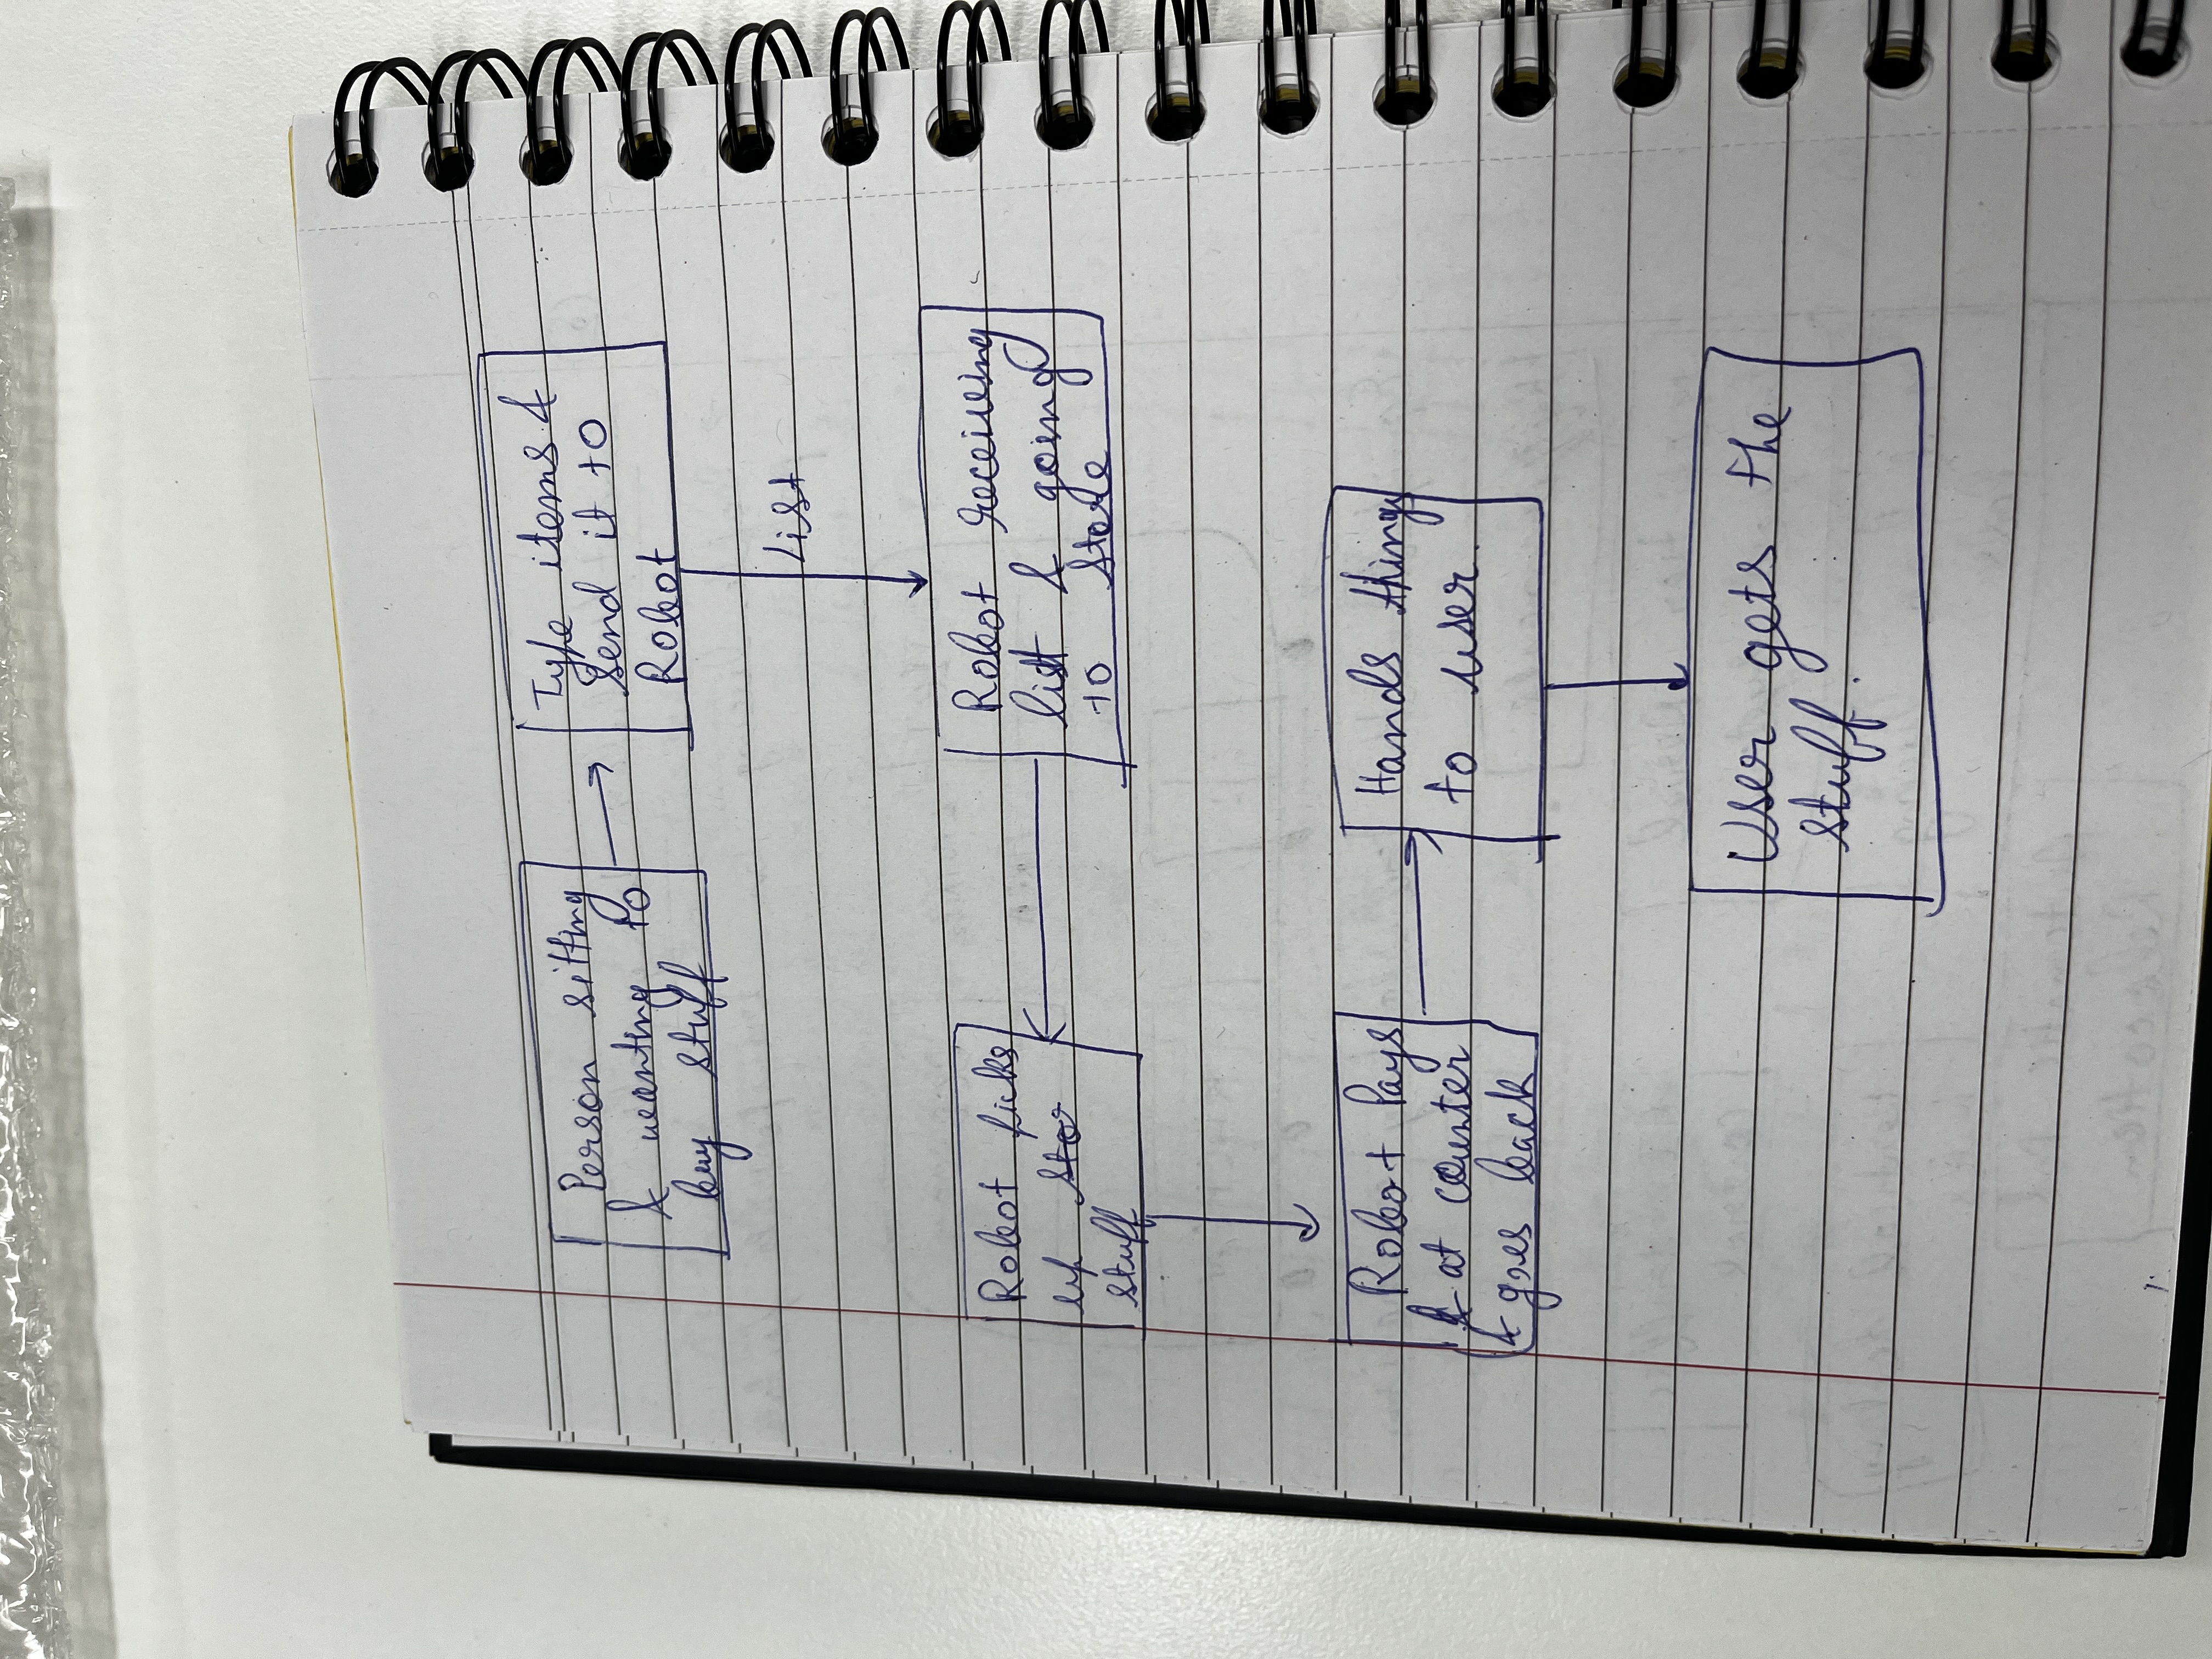 Person sitting
& wanting to
buy stuff
Type items &
send it to
Robot
List
Robot receiving
list & going
to store
Robot picks
up sto
stuff
Robot Pays
& at counter
& goes back
Hands things
to user.
User gets the
stuff.